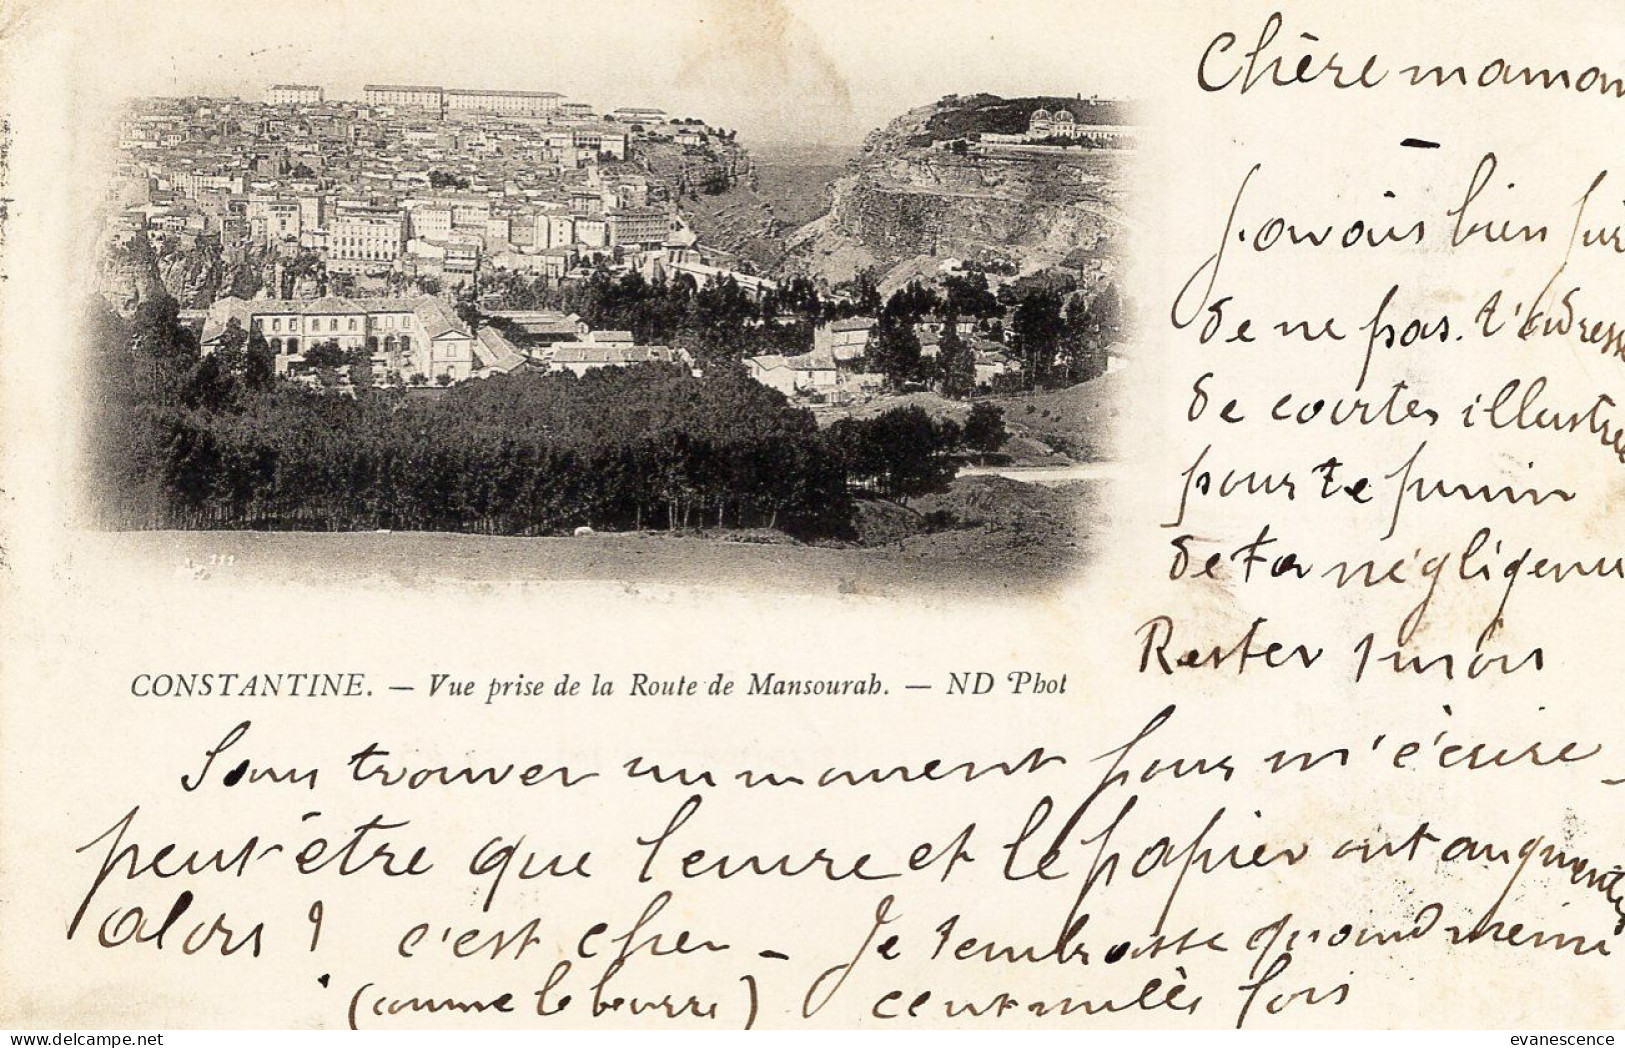 Chère maman
j'avais bien juré
de ne pas t'adresser
de cartes illustrées
pour te punir
de ta négligence
Rester 1 mois
Sans trouver un moment pour m'écrire -
peut-être que l'encre et le papier ont augmentés
alors ? c'est cher - Je t'embrasse quand même
(comme le beurre) cent mille fois
CONSTANTINE. — Vue prise de la Route de Mansourah. — ND Phot
111
evanescence